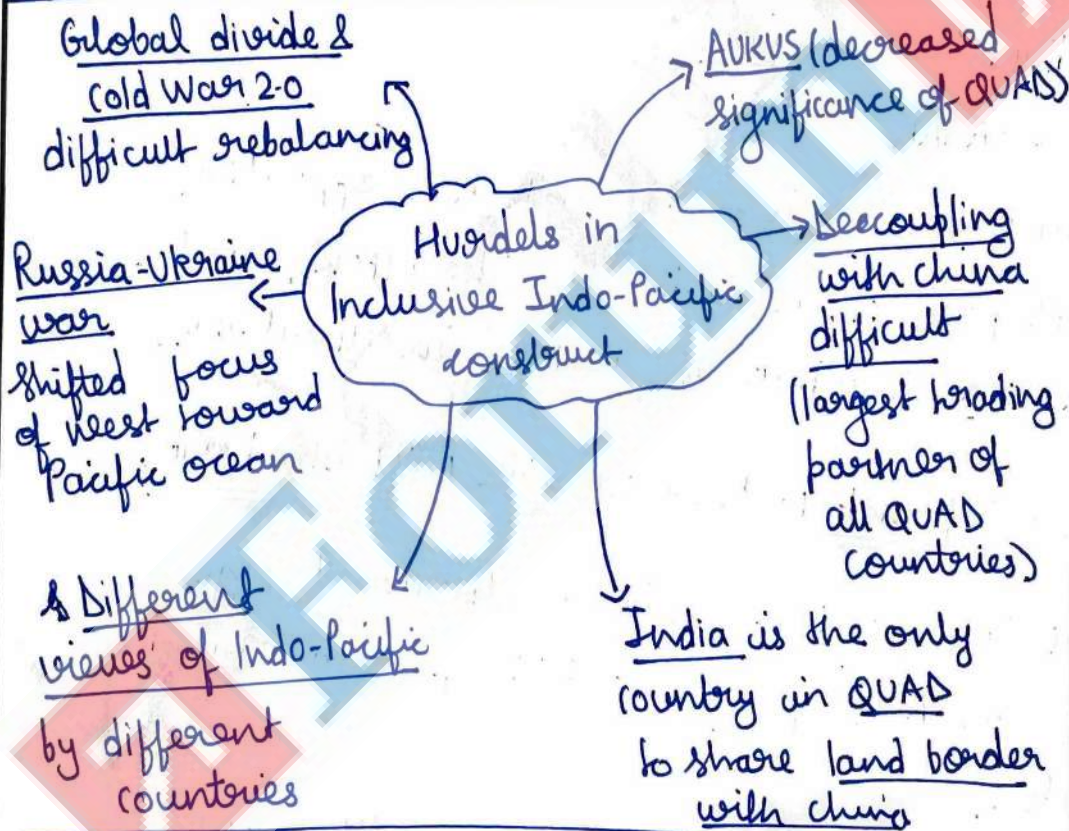 Global divide &
Cold War 2.0
difficult rebalancing
AUKUS (decreased
significance of QUAD)
Hurdels in
Inclusive Indo-Pacific
construct
Russia-Ukraine
war
Shifted focus
of west toward
Pacific ocean
Deecoupling
with china
difficult
(largest trading
partner of
all QUAD
countries)
Different
views of Indo-Pacific
by different
countries
India is the only
country in QUAD
to share land border
with china
Forum